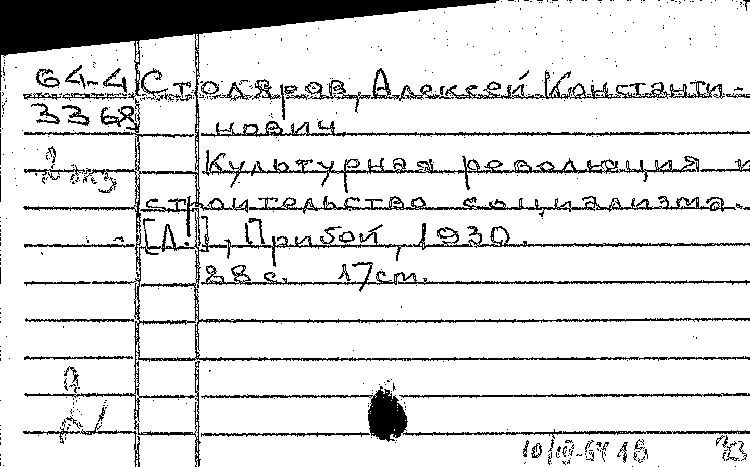 64-4 Столяров, Алексей Константи-
3368 нович
2 экз Культурная революция и
строительство социализма.
[Л.], Прибой, 1930.
88 с. 17 см.
2